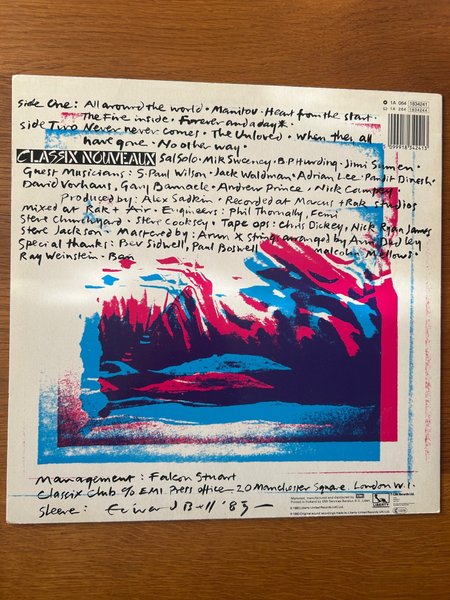 1A 064 1834241
1A 264 1834244
Side One: All around the world • Manitou • Heart from the start •
The Fire inside • Forever and a day*
Side Two Never never comes • The Unloved • When they all
have gone • No other way •
CLASSIX NOUVEAUX Sal Solo • Mik Sweeney • B P Hurding • Jimi Sumen •
Guest Musicians: S. Paul Wilson • Jack Waldman • Adrian Lee • Pandit Dinesh •
David Vorhaus, Gary Barnacle • Andrew Prince • Nick
Produced by: Alex Sadkin • Recorded at Marcus + Rak studios
mixed at Rak + Air • Engineers: Phil Thornally, Femi
Steve Churchyard • Steve Cooksey • Tape ops: Chris Dickey, Nick Ryan James
Steve Jackson • Mastered by: Arun X Strings arranged by Ann Dudley
Special thanks: Bev Sidwell, Paul Boswell Malcolm Mellows •
Ray Weinstein • Ben
Management: Falcon Stuart
Classix Club c/o EMI Press office 20 Manchester Square. London W.1.
Sleeve: Edward Bell '83
EMI
LIBERTY